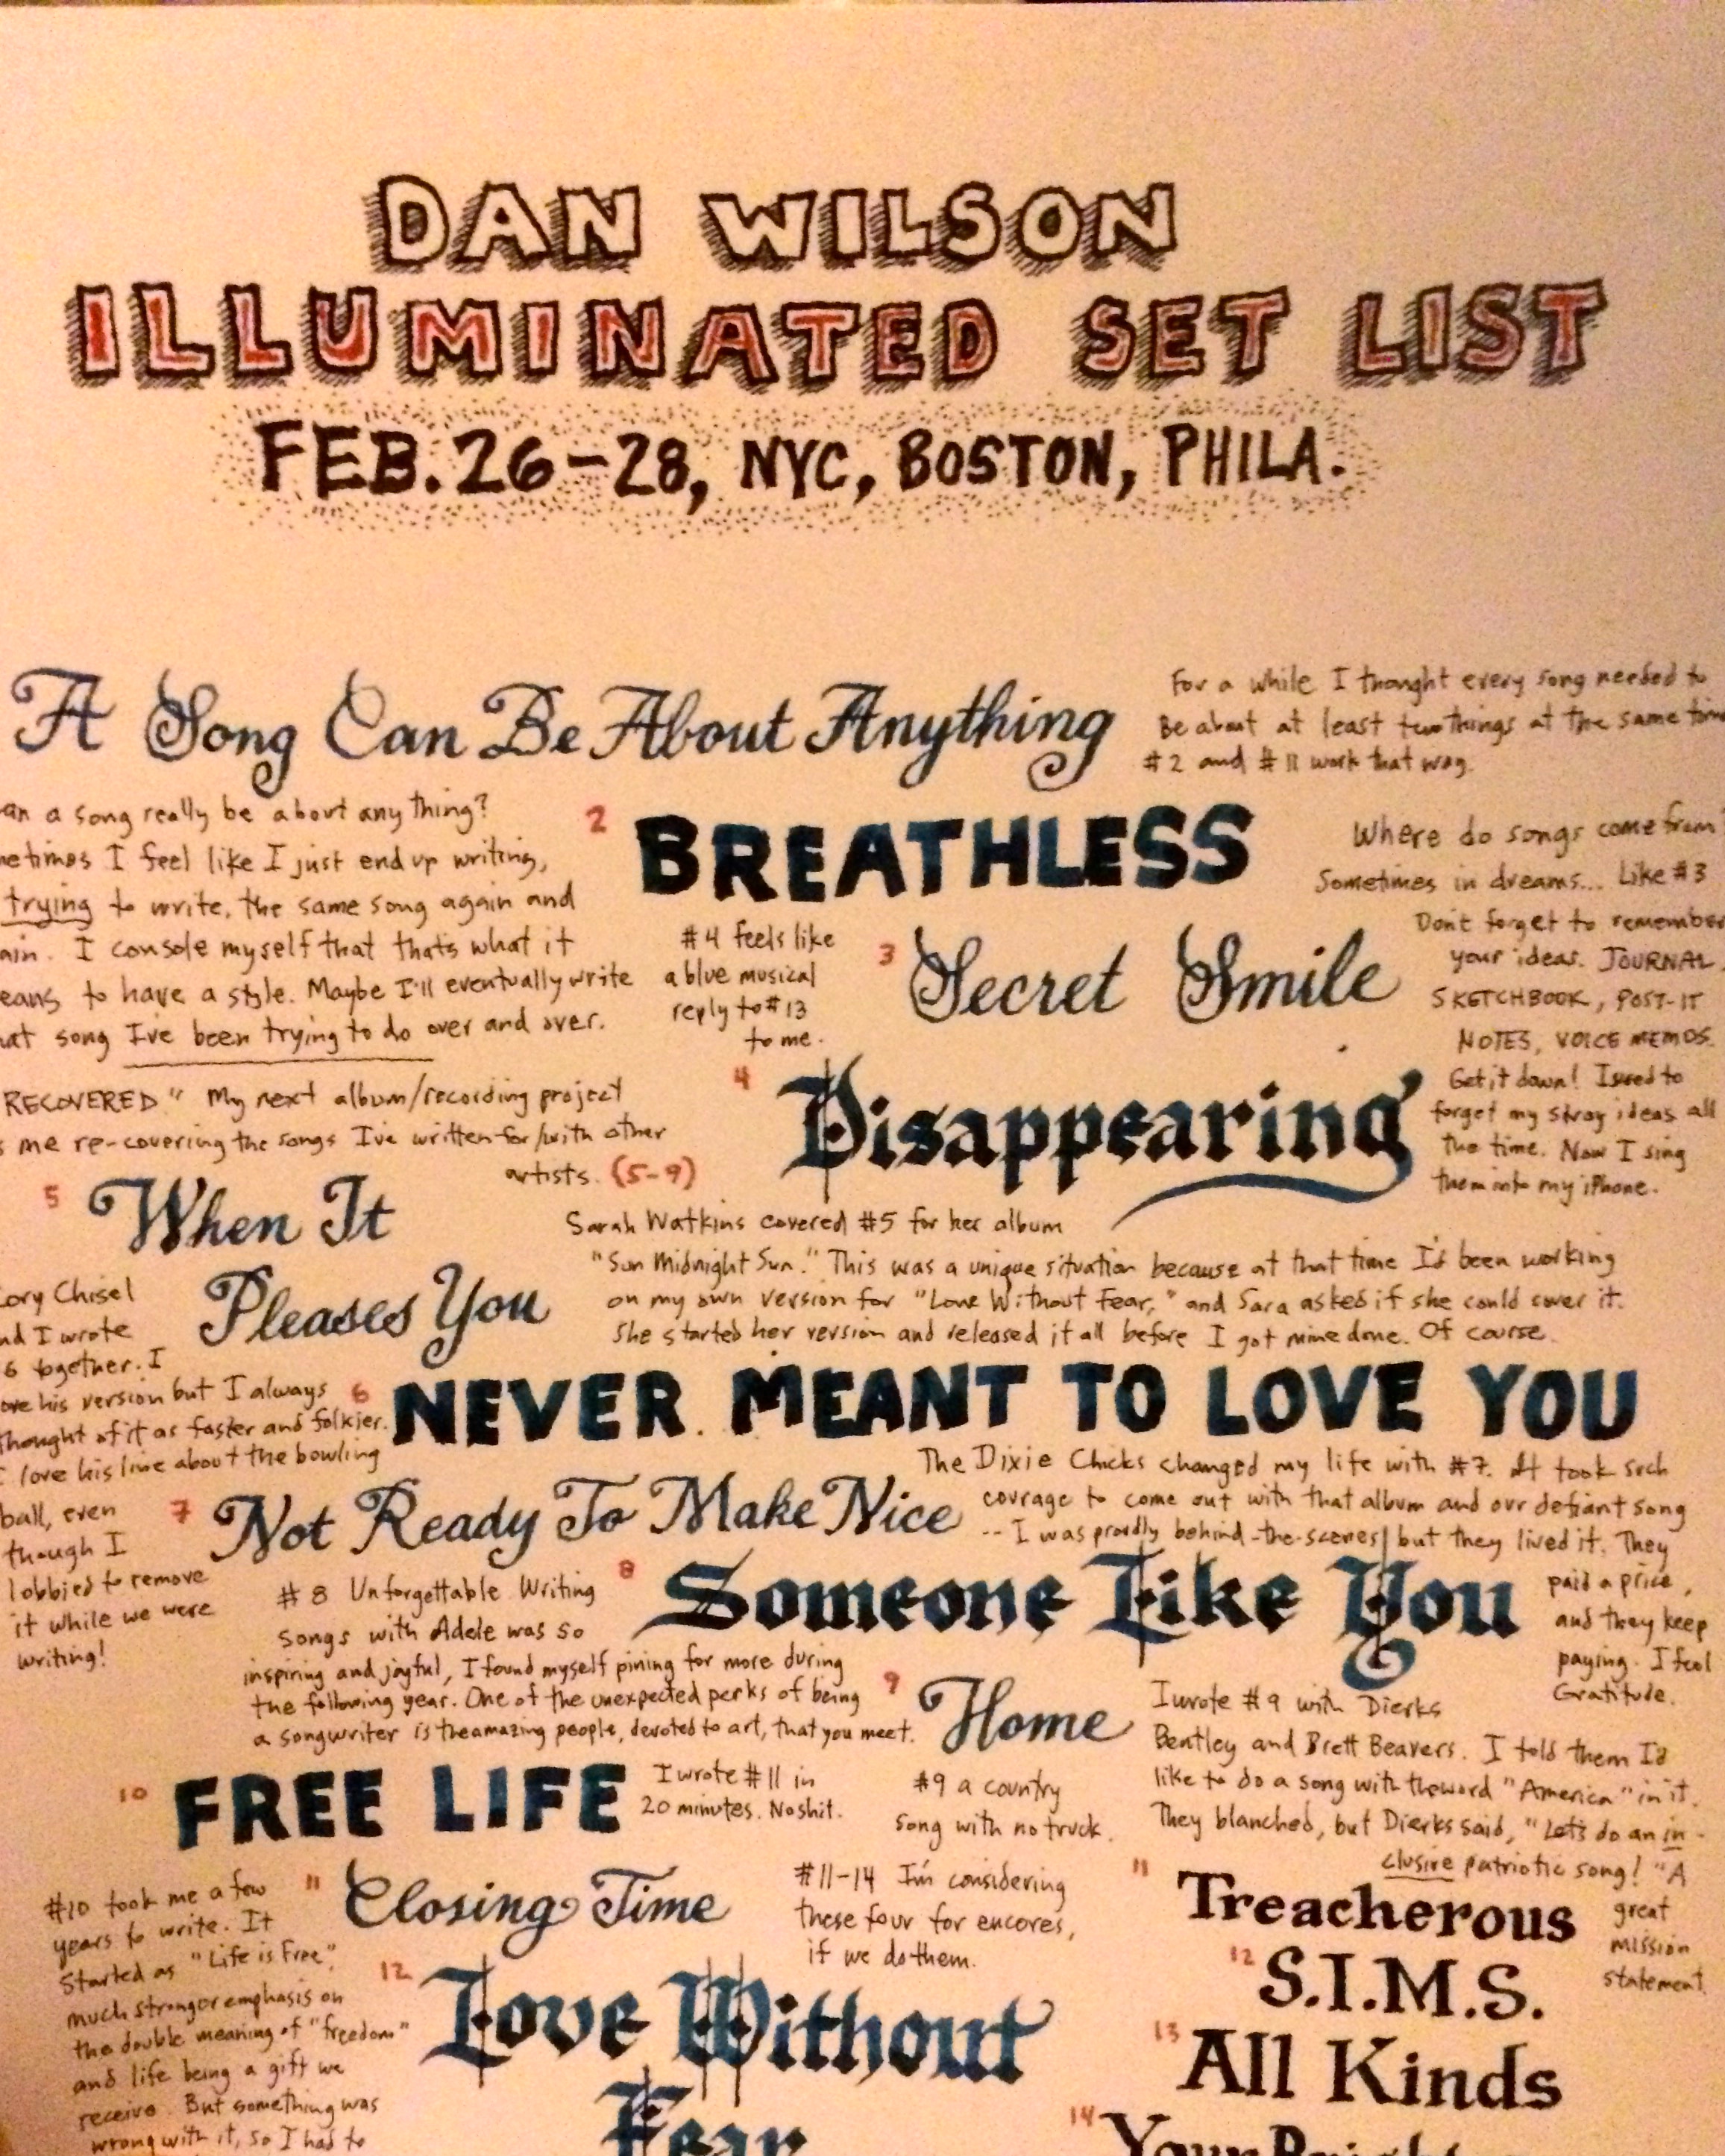 DAN WILSON
ILLUMINATED SET LIST
FEB. 26-28, NYC, BOSTON, PHILA.
A Song Can Be About Anything
For a while I thought every song needed to
Be about at least two things at the same time
#2 and #11 work that way.
an a song really be about any thing?
metimes I feel like I just end up writing,
trying to write, the same song again and
ain. I console myself that thats what it
eans to have a style. Maybe I'll eventually write
hat song I've been trying to do over and over.
2 BREATHLESS
Where do songs come from?
Sometimes in dreams... Like #3
#4 feels like
a blue musical
reply to #13
to me.
3 Secret Smile
Don't forget to remember
your ideas. JOURNAL,
SKETCHBOOK, POST-IT
NOTES, VOICE MEMOS.
Get it down! I used to
forget my stray ideas all
the time. Now I sing
them into my iPhone.
4 Disappearing
RECOVERED" My next album/recording project
s me re-covering the songs I've written for/with other
artists. (5-9)
5 When It
Pleases You
Sarah Watkins covered #5 for her album
"Sun Midnight Sun." This was a unique situation because at that time I'd been working
on my own version for "Love Without Fear," and Sara asked if she could cover it.
She started her version and released it all before I got mine done. Of course.
Cory Chisel
nd I wrote
6 together. I
ove his version but I always
thought of it as faster and folkier.
I love his line about the bowling
ball, even
though I
lobbied to remove
it while we were
writing!
6 NEVER MEANT TO LOVE YOU
7 Not Ready To Make Nice
The Dixie Chicks changed my life with #7. It took such
courage to come out with that album and our defiant song
-- I was proudly behind-the-scenes, but they lived it. They
paid a price,
and they keep
paying. I feel
Gratitude.
8 Someone Like You
#8 Unforgettable. Writing
songs with Adele was so
inspiring and joyful, I found myself pining for more during
the following year. One of the unexpected perks of being
a songwriter is the amazing people, devoted to art, that you meet.
9 Home
I wrote #9 with Dierks
Bentley and Brett Beavers. I told them I'd
like to do a song with the word "America" in it.
They blanched, but Dierks said, "Let's do an in-
clusive patriotic song!" A
great
mission
statement.
10 FREE LIFE
I wrote #11 in
20 minutes. No shit.
#9 a country
song with no truck.
#10 took me a few
years to write. It
Started as "Life is Free",
much stronger emphasis on
the double meaning of "freedom"
and life being a gift we
receive. But something was
wrong with it, so I had to
11 Closing Time
#11-14 I'm considering
these four for encores,
if we do them.
12 Love Without
Fear
11 Treacherous
12 S.I.M.S.
13 All Kinds
14 Your Bright